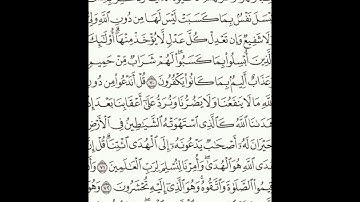 تُبْسَلَ نَفْسٌۢ بِمَا كَسَبَتْ لَيْسَ لَهَا مِن دُونِ ٱللَّهِ وَلِىٌّ
وَلَا شَفِيعٌ وَإِن تَعْدِلْ كُلَّ عَدْلٍ لَّا يُؤْخَذْ مِنْهَآ أُو۟لَٰٓئِكَ
ٱلَّذِينَ أُبْسِلُوا۟ بِمَا كَسَبُوا۟ لَهُمْ شَرَابٌ مِّنْ حَمِيمٍ
عَذَابٌ أَلِيمٌۢ بِمَا كَانُوا۟ يَكْفُرُونَ ٧٠ قُلْ أَنَدْعُوا۟ مِن دُونِ
ٱللَّهِ مَا لَا يَنفَعُنَا وَلَا يَضُرُّنَا وَنُرَدُّ عَلَىٰٓ أَعْقَابِنَا بَعْدَ إِذْ
هَدَىٰنَا ٱللَّهُ كَٱلَّذِى ٱسْتَهْوَتْهُ ٱلشَّيَٰطِينُ فِى ٱلْأَرْضِ
حَيْرَانَ لَهُۥٓ أَصْحَٰبٌ يَدْعُونَهُۥٓ إِلَى ٱلْهُدَى ٱئْتِنَا قُلْ إِنَّ
هُدَى ٱللَّهِ هُوَ ٱلْهُدَىٰ وَأُمِرْنَا لِنُسْلِمَ لِرَبِّ ٱلْعَٰلَمِينَ ٧١ وَأَنْ
أَقِيمُوا۟ ٱلصَّلَوٰةَ وَٱتَّقُوهُ وَهُوَ ٱلَّذِىٓ إِلَيْهِ تُحْشَرُونَ ٧٢ وَهُوَ